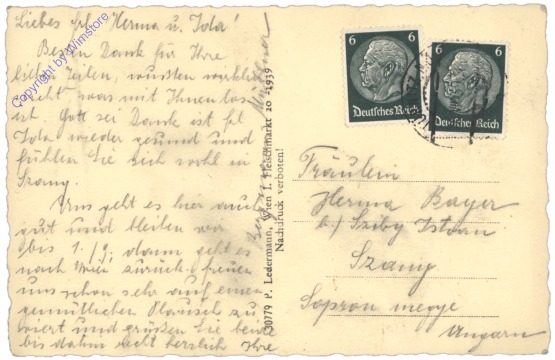 Liebes Frl. Herma u. Jola!
Besten Dank für Ihre
lieben Zeilen, wussten wirklich
nicht, was mit Ihnen los
ist. Gott sei Dank ist Frl
Jola wieder gesund und
fühlen Sie sich wohl in
Szany.
Uns geht es hier auch
gut und bleiben wir
bis 1./9., dann geht es
nach Wien zurück, freuen
uns schon sehr auf einen
gemütlichen Plausch zu
viert und grüßen Sie beide
bis dahin recht herzlich Ihre
30779 P. Ledermann, Wien I. Fleischmarkt 20 -1939
Nachdruck verboten!
6 6
Deutsches Reich
6 6
Deutsches Reich
Fräulein
Herma Bayer
b/ Sziby Istvan
Szany
Sopron megye
Ungarn
Copyright by Wimstore